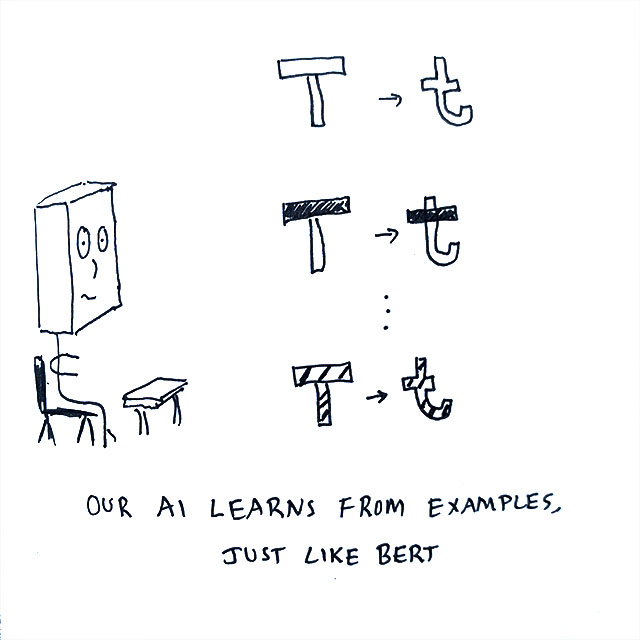 T → t
T → t
T → t
OUR AI LEARNS FROM EXAMPLES,
JUST LIKE BERT